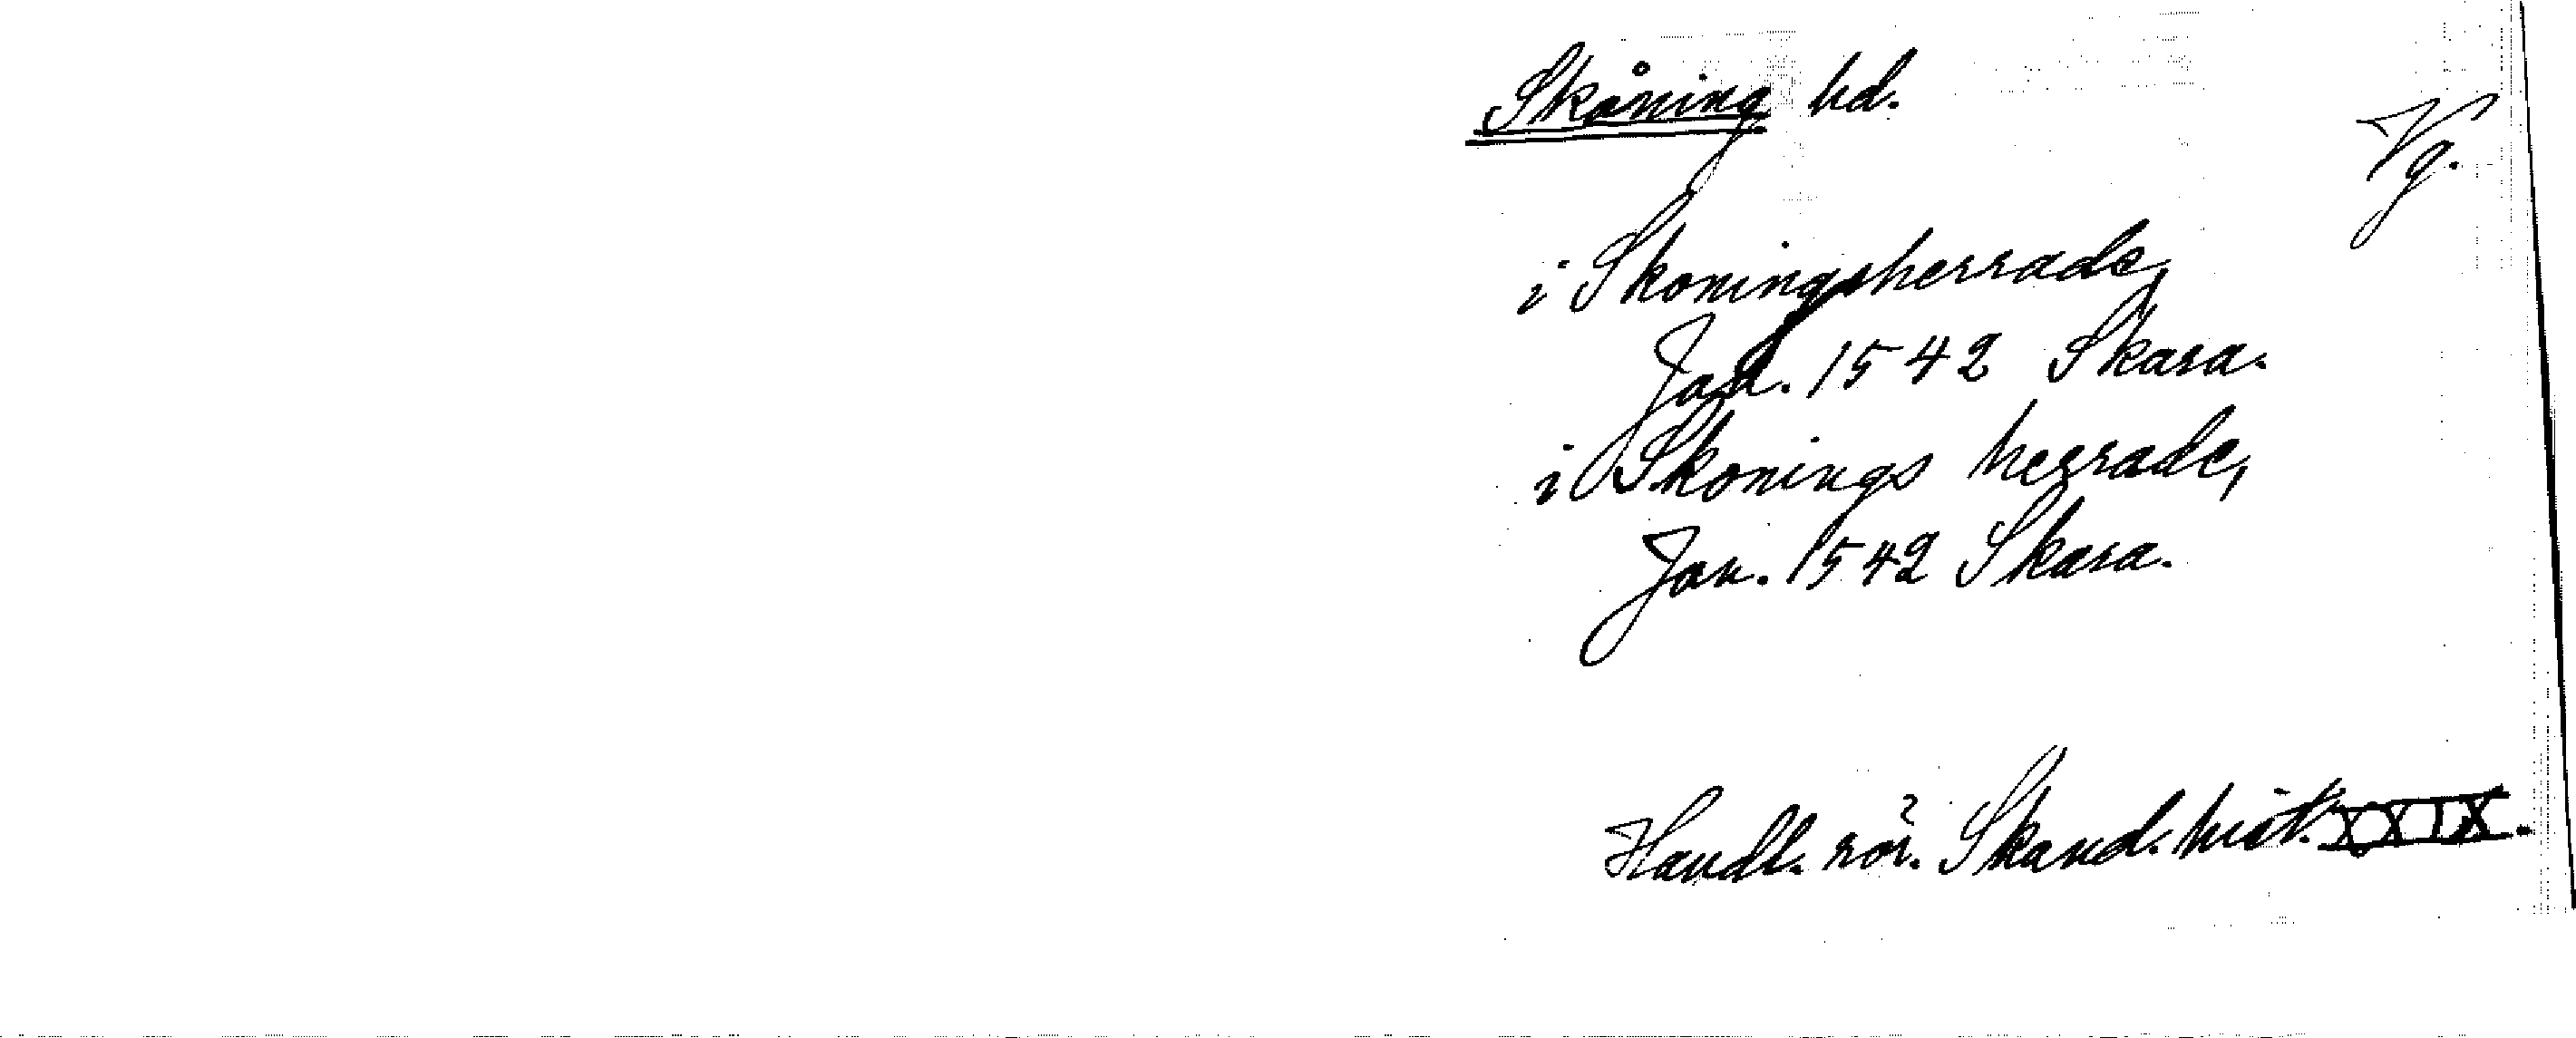 Skåning hd.
Vg.
i Skoningsherrade,
Jan. 1542 Skara.
i Skonings herrade,
Jan. 1542 Skara.
Handl. rör. Skand. hist. XXIX.